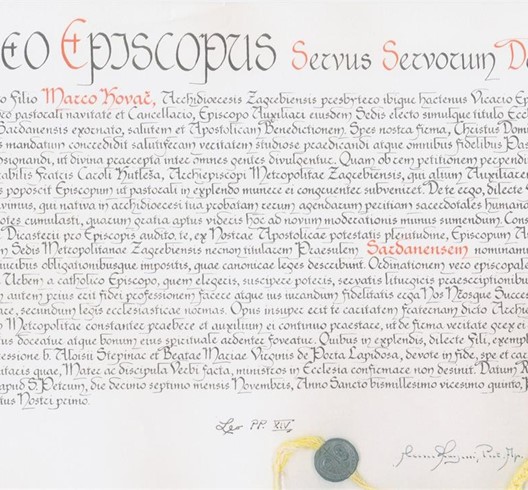 EO EPISCOPUS Servus Servorum D
o Filio Marco Kovač, Archidioecesis Zagrebiensis presbytero ibique hactenus Vicario Ep
ro pastorali navitate et Cancellario, Episcopo Auxiliari eiusdem Sedis electo simulque titulo Ecc
Sardanensis exornato, salutem et Apostolicam Benedictionem. Spes nostra firma, Christus Domi
s mandatum concredidit salutiferam veritatem studiose praedicandi atque omnibus fidelibus Pas
osignandi, ut divina praecepta inter omnes gentes divulgentur. Quam ob rem petitionem perpend
rabilis Fratris Caroli Kutleša, Archiepiscopi Metropolitae Zagrebiensis, qui alium Auxiliare
s poposcit Episcopum ut pastorali in explendo munere ei congruenter subveniret. De te ergo, dilecte
vimus, qui nativa in archidioecesi tua probatam rerum agendarum peritiam sacerdotales humanas
otes cumulasti, quarum gratia aptus videris hoc ad novum moderationis munus sumendum. Cons
Dicasterii pro Episcopis audito, te, ex Nostrae Apostolicae potestatis plenitudine, Episcopum A
m Sedis Metropolitanae Zagrebiensis necnon titularem Praesulem Sardanensem nominam
ribus obligationibusque impositis, quae canonicae leges describunt. Ordinationem vero episcopale
Urbem a catholico Episcopo, quem elegeris, suscipere poteris, servatis liturgicis praescriptionib
autem prius erit fidei professionem facere atque ius iurandum fidelitatis erga Nos Nosque Succe
are, secundum leges ecclesiasticae normas. Opus insuper erit te caritatem fraternam dicto Archie
Metropolitae constanter praebere et auxilium ei continuo praestare, ut de firma veritate grex e
us doceatur atque bonum eius spirituale ardenter foveatur. Quibus in explendis, dilecte Fili, exemp
cessione b. Aloisii Stepinac et Beatae Mariae Virginis de Porta Lapidosa, devote in fide, spe et car
itaris quae, Mater ac discipula Verbi facta, ministros in Ecclesia confirmare non desinit. Datum R
apud S. Petrum, die decimo septimo mensis Novembris, Anno Sancto bismillesimo vicesimo quinto, P
tus Nostri primo.
Leo PP. XIV